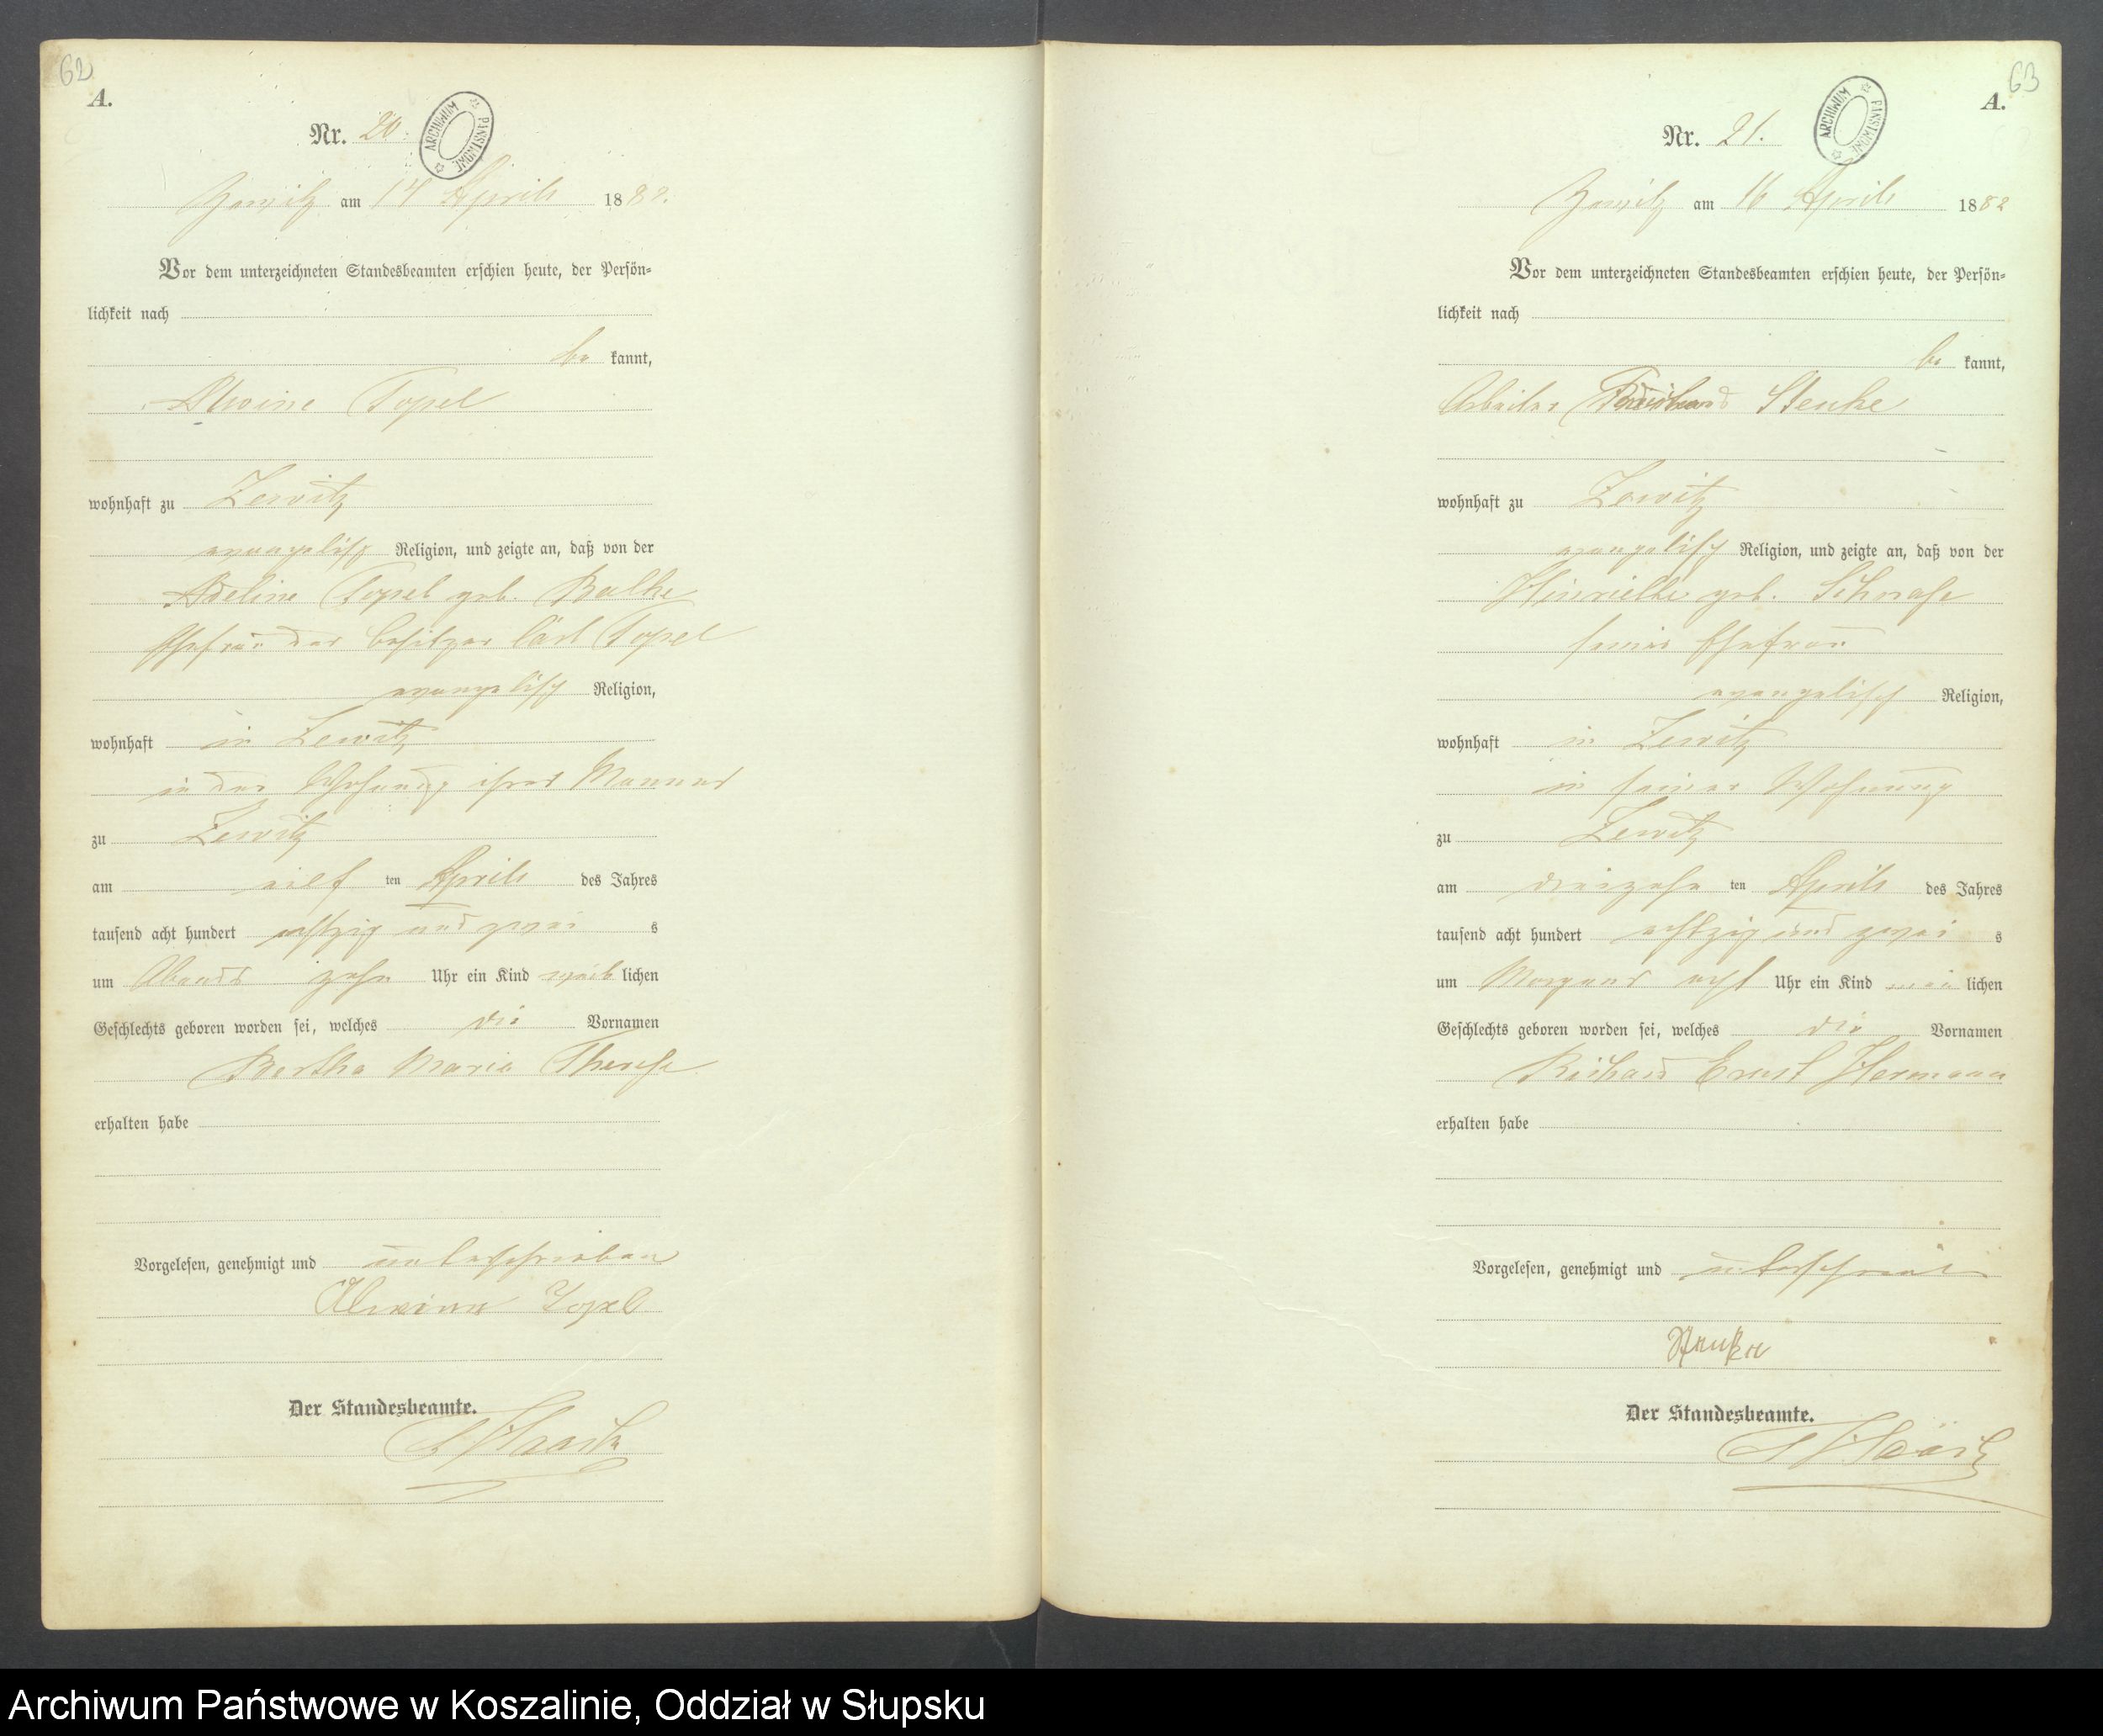 62
A.
Nr. 20.
ARCHIWUM PAŃSTWOWE
Zewitz am 14 Aprils 1882.
Vor dem unterzeichneten Standesbeamten erschien heute, der Persön=
lichkeit nach
be kannt,
Alwine Topel
wohnhaft zu Zewitz
evangelisch Religion, und zeigte an, daß von der
Adeline Topel geb. Balke
Ehefrau des Besitzer Carl Topel
evangelisch Religion,
wohnhaft in Zewitz
in der Wohnung ihres Mannes
zu Zewitz
am eilf ten Aprils des Jahres
tausend acht hundert achtzig und zwei s
um Abends zehn Uhr ein Kind weib lichen
Geschlechts geboren worden sei, welches die Vornamen
Bertha Maria Therese
erhalten habe
Vorgelesen, genehmigt und unterschrieben
Alwine Topel
Der Standesbeamte.
63
A.
Nr. 21.
ARCHIWUM PAŃSTWOWE
Zewitz am 16 Aprils 1882
Vor dem unterzeichneten Standesbeamten erschien heute, der Persön=
lichkeit nach
be kannt,
Arbeiter Stenke
wohnhaft zu Zewitz
evangelisch Religion, und zeigte an, daß von der
geb.
seine Ehefrau
evangelisch Religion,
wohnhaft in Zewitz
in seiner Wohnung
zu Zewitz
am dreizehn ten Aprils des Jahres
tausend acht hundert achtzig und zwei s
um Morgens acht Uhr ein Kind lichen
Geschlechts geboren worden sei, welches die Vornamen
Richard Ernst Hermann
erhalten habe
Vorgelesen, genehmigt und
Stenke
Der Standesbeamte.
Archiwum Państwowe w Koszalinie, Oddział w Słupsku